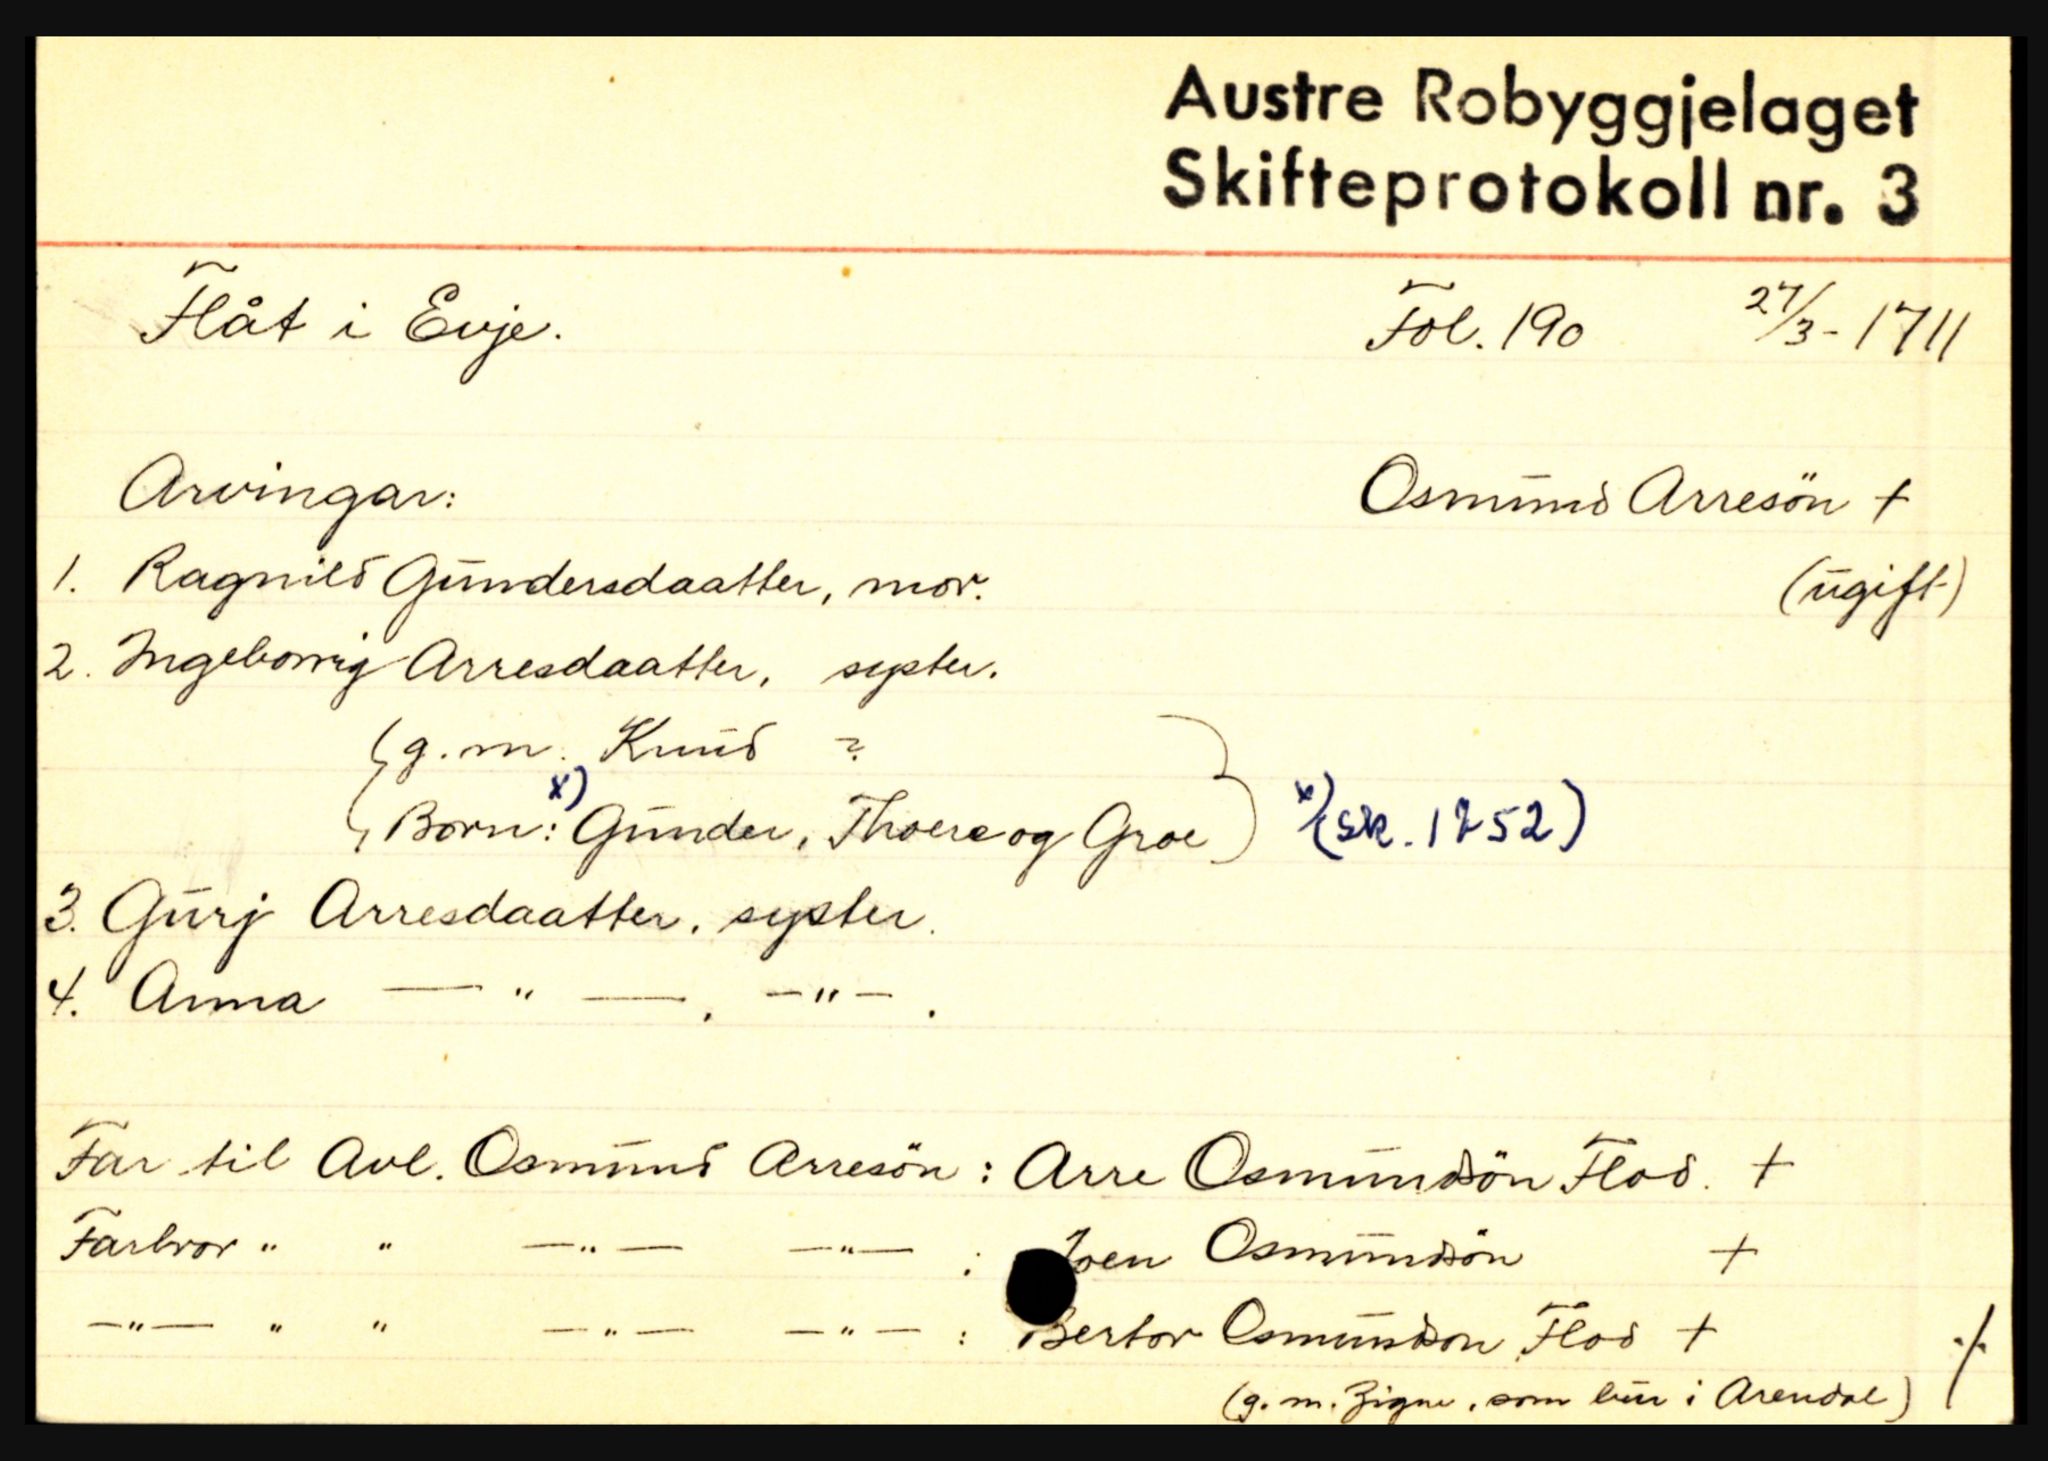 Austre Robyggjelaget
Skifteprotokoll nr. 3
Flåt i Evje. Fol. 190 27/3-1711
Arvingar: Osmund Arresön +
1. Ragnild Gundersdaatter, mor. (ugift)
2. Ingeborrig Arresdaatter, syster.
g.m. Knud ?
Born: x) Gunder, Thoere og Groe x) (sk. 1752)
3. Gurj Arresdaatter, syster.
4. Anna — " —, — " — .
Far til Avl. Osmund Arresön : Arre Osmundsön Flod. +
Farbror " " — " — — " — : Joen Osmundsön +
— " — " " — " — — " — : Bertor Osmundson Flod +
(g. m. Zigne, som bur i Arendal) ./.